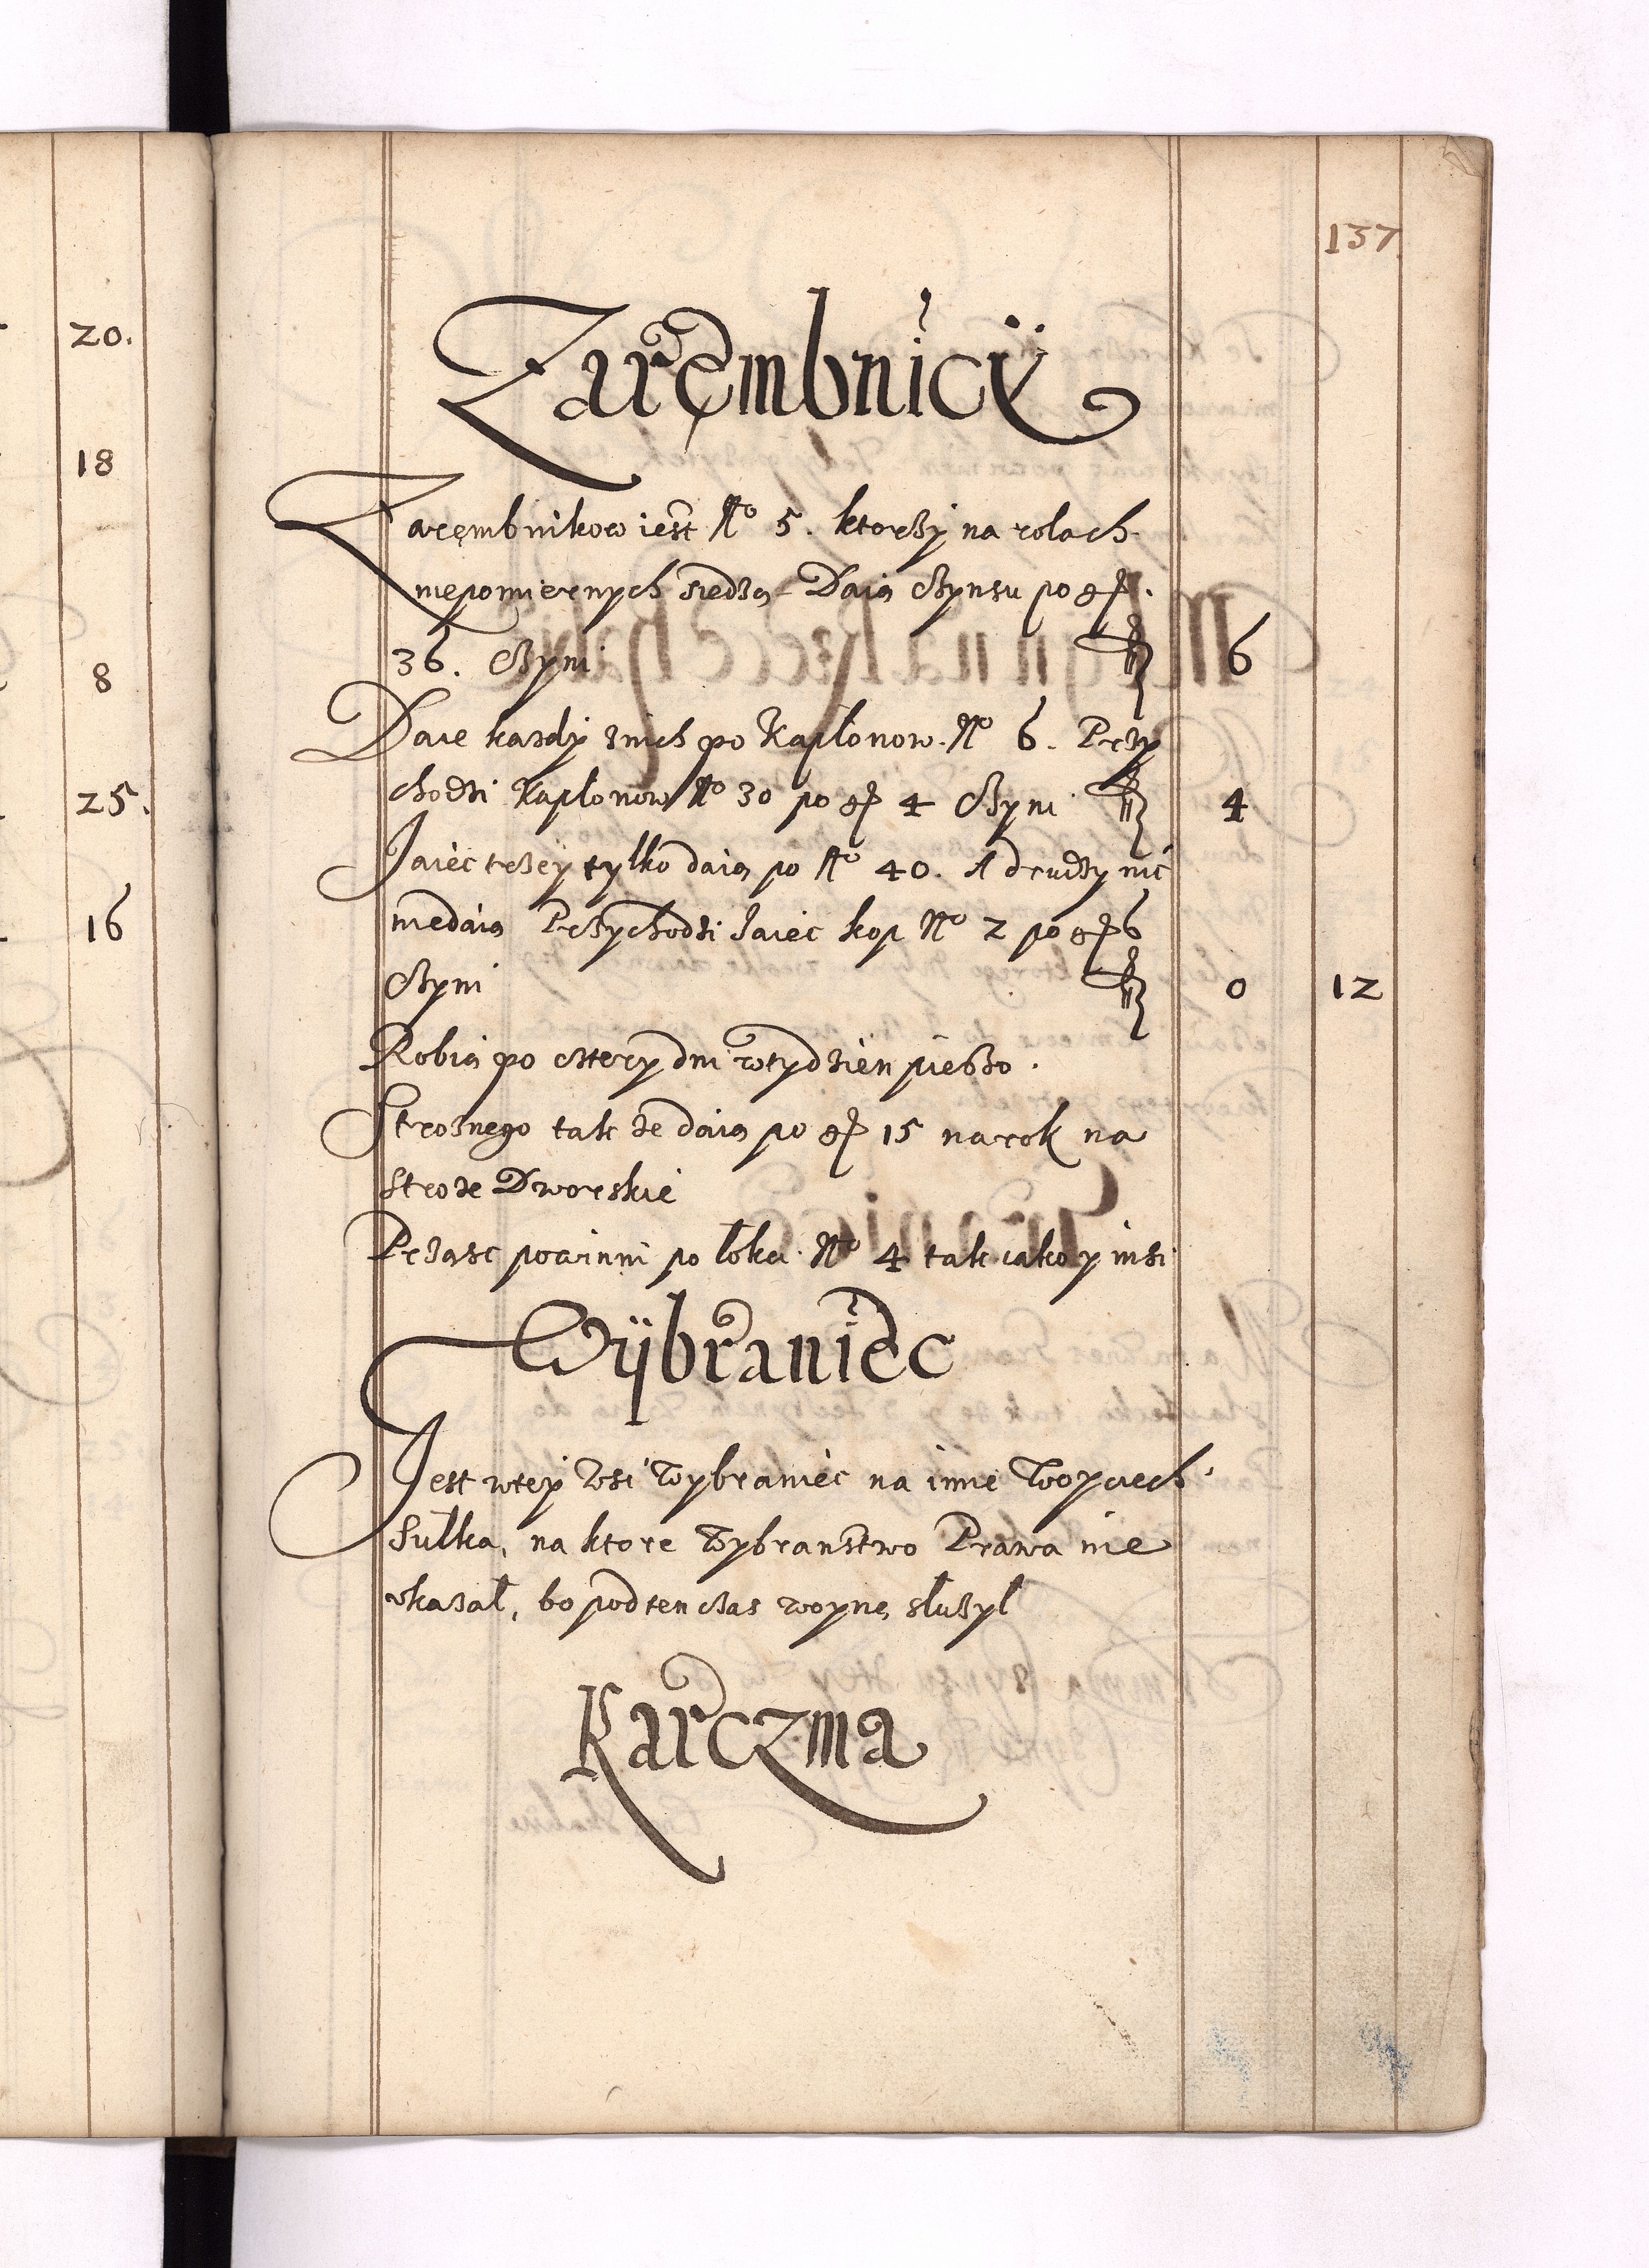 20.
18
8
25.
16
137
Zarembnicÿ
Zarębnikow iest No 5. ktorzÿ na rolach
niepomiernych siedzą Daią Czynsu po gr.
36. Czyni fl 6
Daie kazdÿ znich po Kapłonow. No 6. Przy
chodzi Kapłonow No 30 po gr 4 Czyni fl 4
Jaiec trzeÿ tylko daią po No 40. A drudzy nic
niedaią Przychodzi Jaiec kop No 2 po gr 6
Czyni fl 0 12
Robią po cztery dni w tydzien pieszo.
Stroznego tak ze daią po gr 15 na rok na
stroze Dworskie
Przasc powinni po łokci No 4 tak iako y inszi
Wÿbraniec
Jest w teÿ Wsi Wybraniec na imie Woyciech
Sułka, na ktore Wybranstwo Prawa nie
vkazał, bo pod ten czas woynę słuzył
Karczma